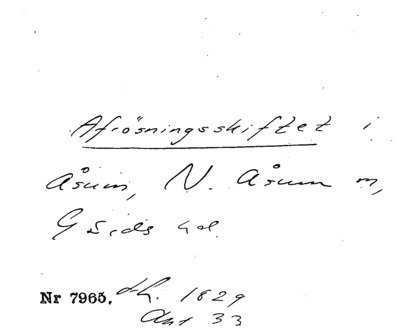 Afrösningsskiftet i
Åsum, N. Åsum m,
Gärds hd.
Nr 7965. d.h. 1829
Akt 33